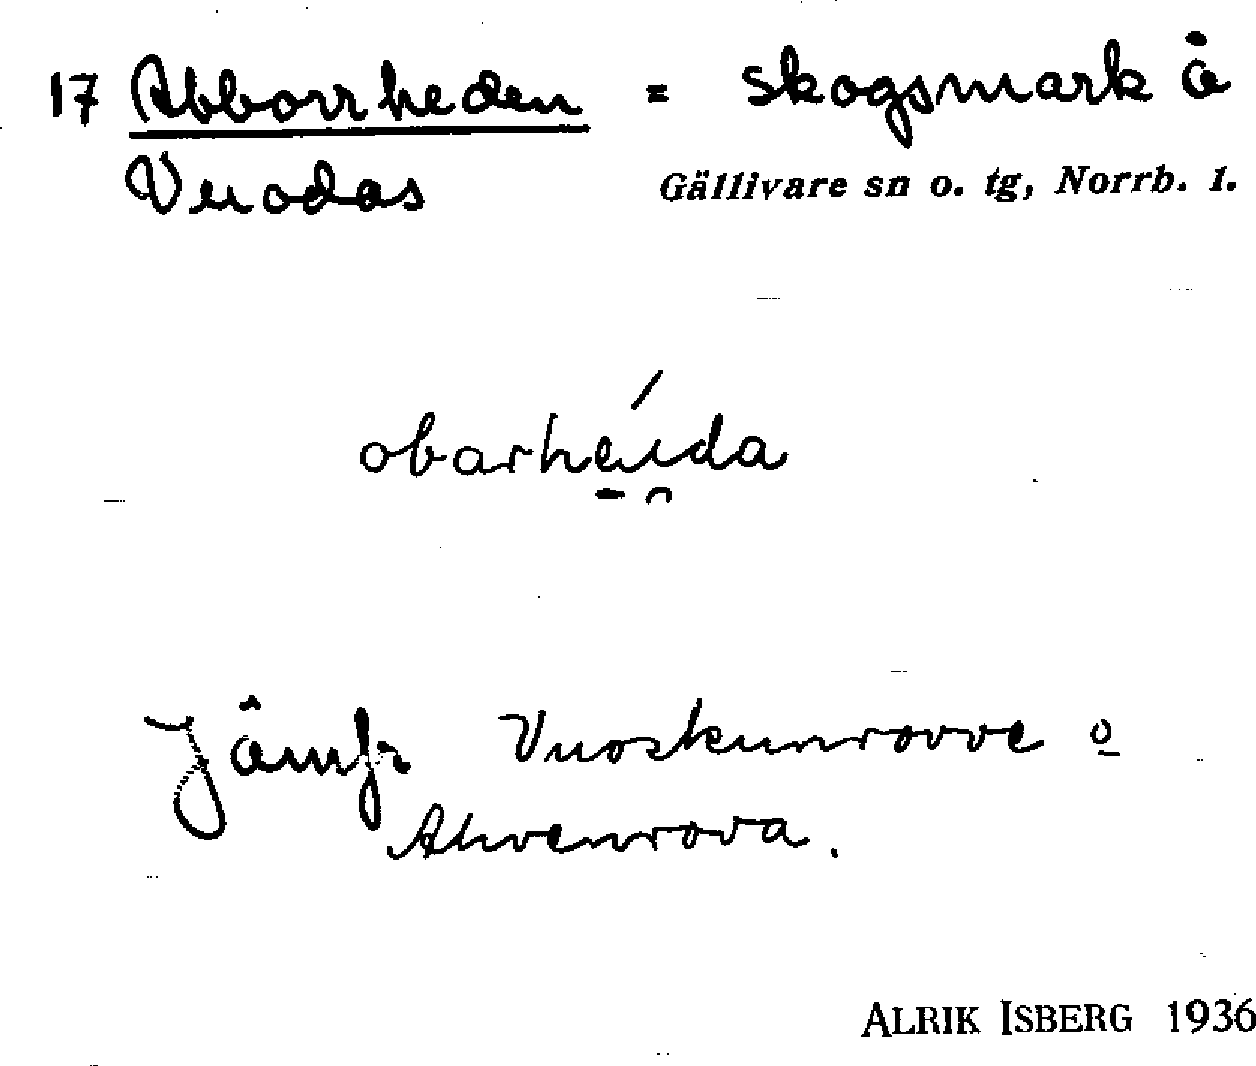 17 Abborrheden = skogsmark å
Vuodas Gällivare sn o. tg, Norrb. l.
obarhei̯da
Jämfr Vuoskunrovve o
Ahvenrova.
ALRIK ISBERG 1936